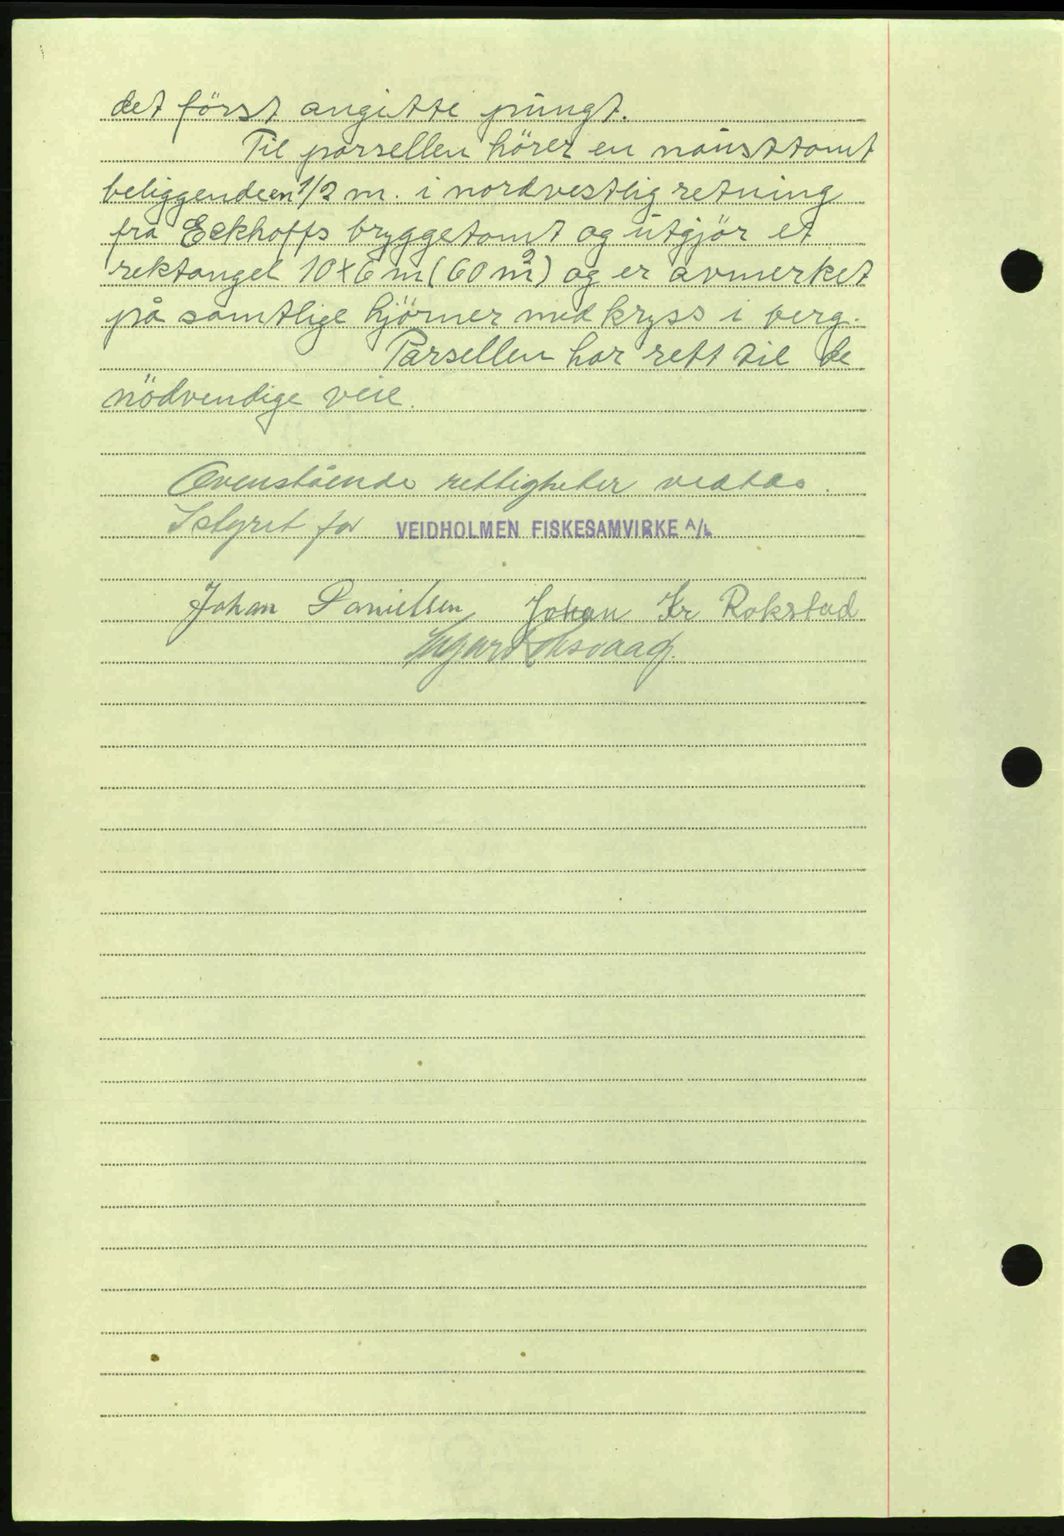 det först angitte pungt.
Til parsellen hörer en nausttomt
beliggende en 1/2 m. i nordvestlig retning
fra Eckhoffs bryggetomt og utgjör et
rektangel 10x6 m (60 m²) og er avmerket
på samtlige hjörner med kryss i berg.
Parsellen har rett til de
nödvendige veie.
Ovenstående rettigheter vedtas.
I styret for VEIDHOLMEN FISKESAMVIRKE A/L
Johan Danielsen Johan Kr Rokstad